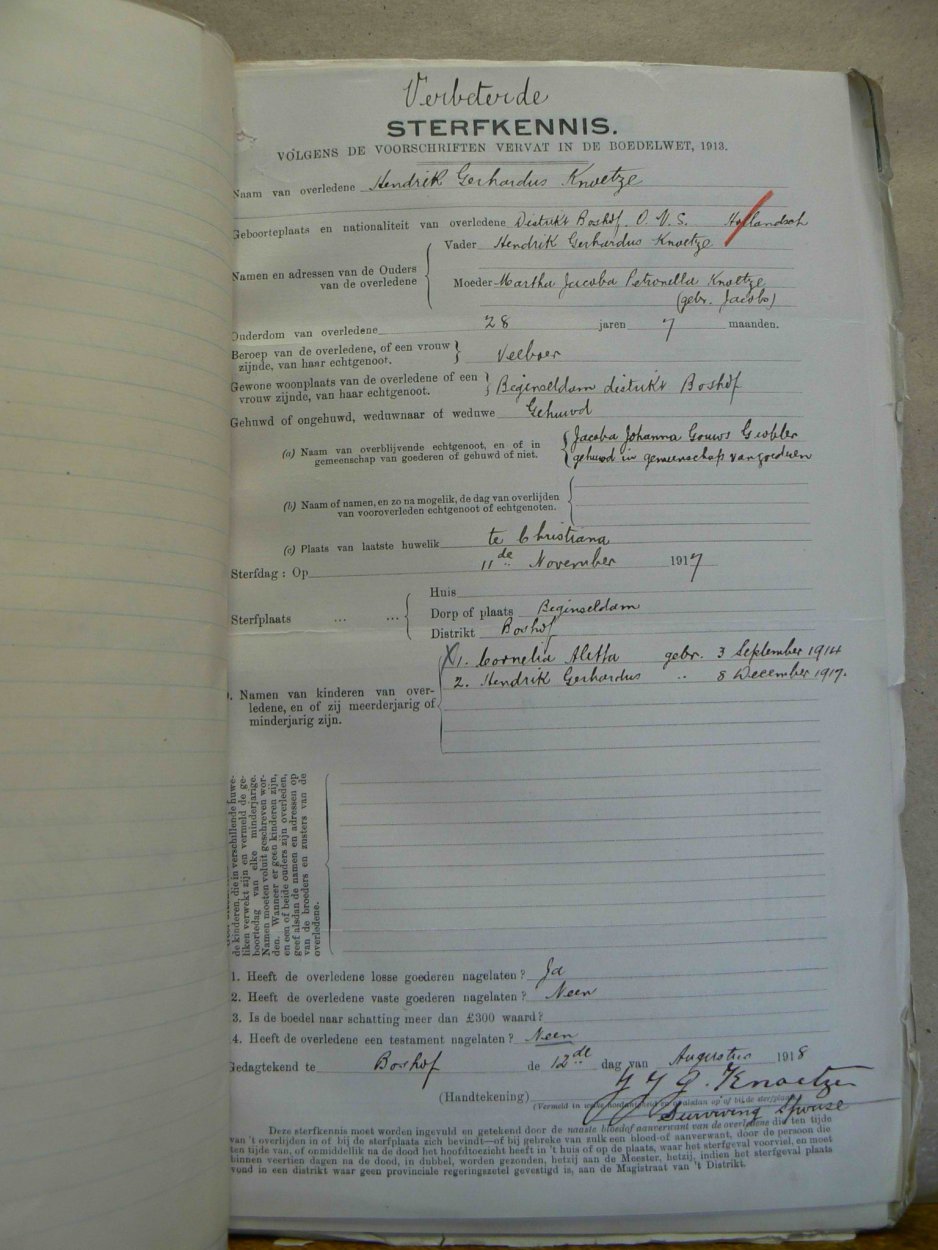 Verbeterde
STERFKENNIS.
VOLGENS DE VOORSCHRIFTEN VERVAT IN DE BOEDELWET, 1913.
Naam van overledene Hendrik Gerhardus Knoetze
Geboorteplaats en nationaliteit van overledene Distrikt Boshof. O. V. S. Hollandsch
Namen en adressen van de Ouders van de overledene
Vader Hendrik Gerhardus Knoetze
Moeder Martha Jacoba Petronella Knoetze
(gebr. Jacobs)
Ouderdom van overledene 28 jaren 7 maanden.
Beroep van de overledene, of een vrouw
zijnde, van haar echtgenoot. Veeboer
Gewone woonplaats van de overledene of een
vrouw zijnde, van haar echtgenoot. Beginseldam distrikt Boshof
Gehuwd of ongehuwd, weduwnaar of weduwe Gehuwd
(a) Naam van overblijvende echtgenoot, en of in
gemeenschap van goederen of gehuwd of niet.
Jacoba Johanna Gouws Grobler
gehuwd in gemeenschap van goederen
(b) Naam of namen, en zo na mogelik, de dag van overlijden
van vooroverleden echtgenoot of echtgenoten.
(c) Plaats van laatste huwelik te Christiana
Sterfdag: Op 11de November 1917
Sterfplaats ... ...
Huis
Dorp of plaats Beginseldam
Distrikt Boshof
Namen van kinderen van over-
ledene, en of zij meerderjarig of
minderjarig zijn.
X 1. Cornelia Aletta gebr. 3 September 1914
2. Hendrik Gerhardus " 8 December 1917.
de kinderen, die in verschillende huwe-
liken verwekt zijn en vermeld de ge-
boortedag van elke minderjarige.
Namen moeten voluit geschreven wor-
den. Wanneer er geen kinderen zijn,
en een of beide ouders zijn overleden,
geef alsdan de namen en adressen op
van de broeders en zusters van de
overledene.
1. Heeft de overledene losse goederen nagelaten? Ja
2. Heeft de overledene vaste goederen nagelaten? Neen
3. Is de boedel naar schatting meer dan £300 waard?
4. Heeft de overledene een testament nagelaten? Neen
Gedagtekend te Boshof de 12de dag van Augustus 1918
(Handtekening) J J G. Knoetze
(Vermeld in welke hoedanigheid en of alsdan op of bij de sterfplaats
Surviving Spouse
Deze sterfkennis moet worden ingevuld en getekend door de naaste bloedof aanverwant van de overledene die ten tijde
van 't overlijden in of bij de sterfplaats zich bevindt—of bij gebreke van zulk een bloed-of aanverwant, door de persoon die
ten tijde van, of onmiddellik na de dood het hoofdtoezicht heeft in 't huis of op de plaats, waar het sterfgeval voorviel, en moet
binnen veertien dagen na de dood, in dubbel, worden gezonden, hetzij aan de Meester, hetzij, indien het sterfgeval plaats
vond in een distrikt waar geen provinciale regeringszetel gevestigd is, aan de Magistraat van 't Distrikt.